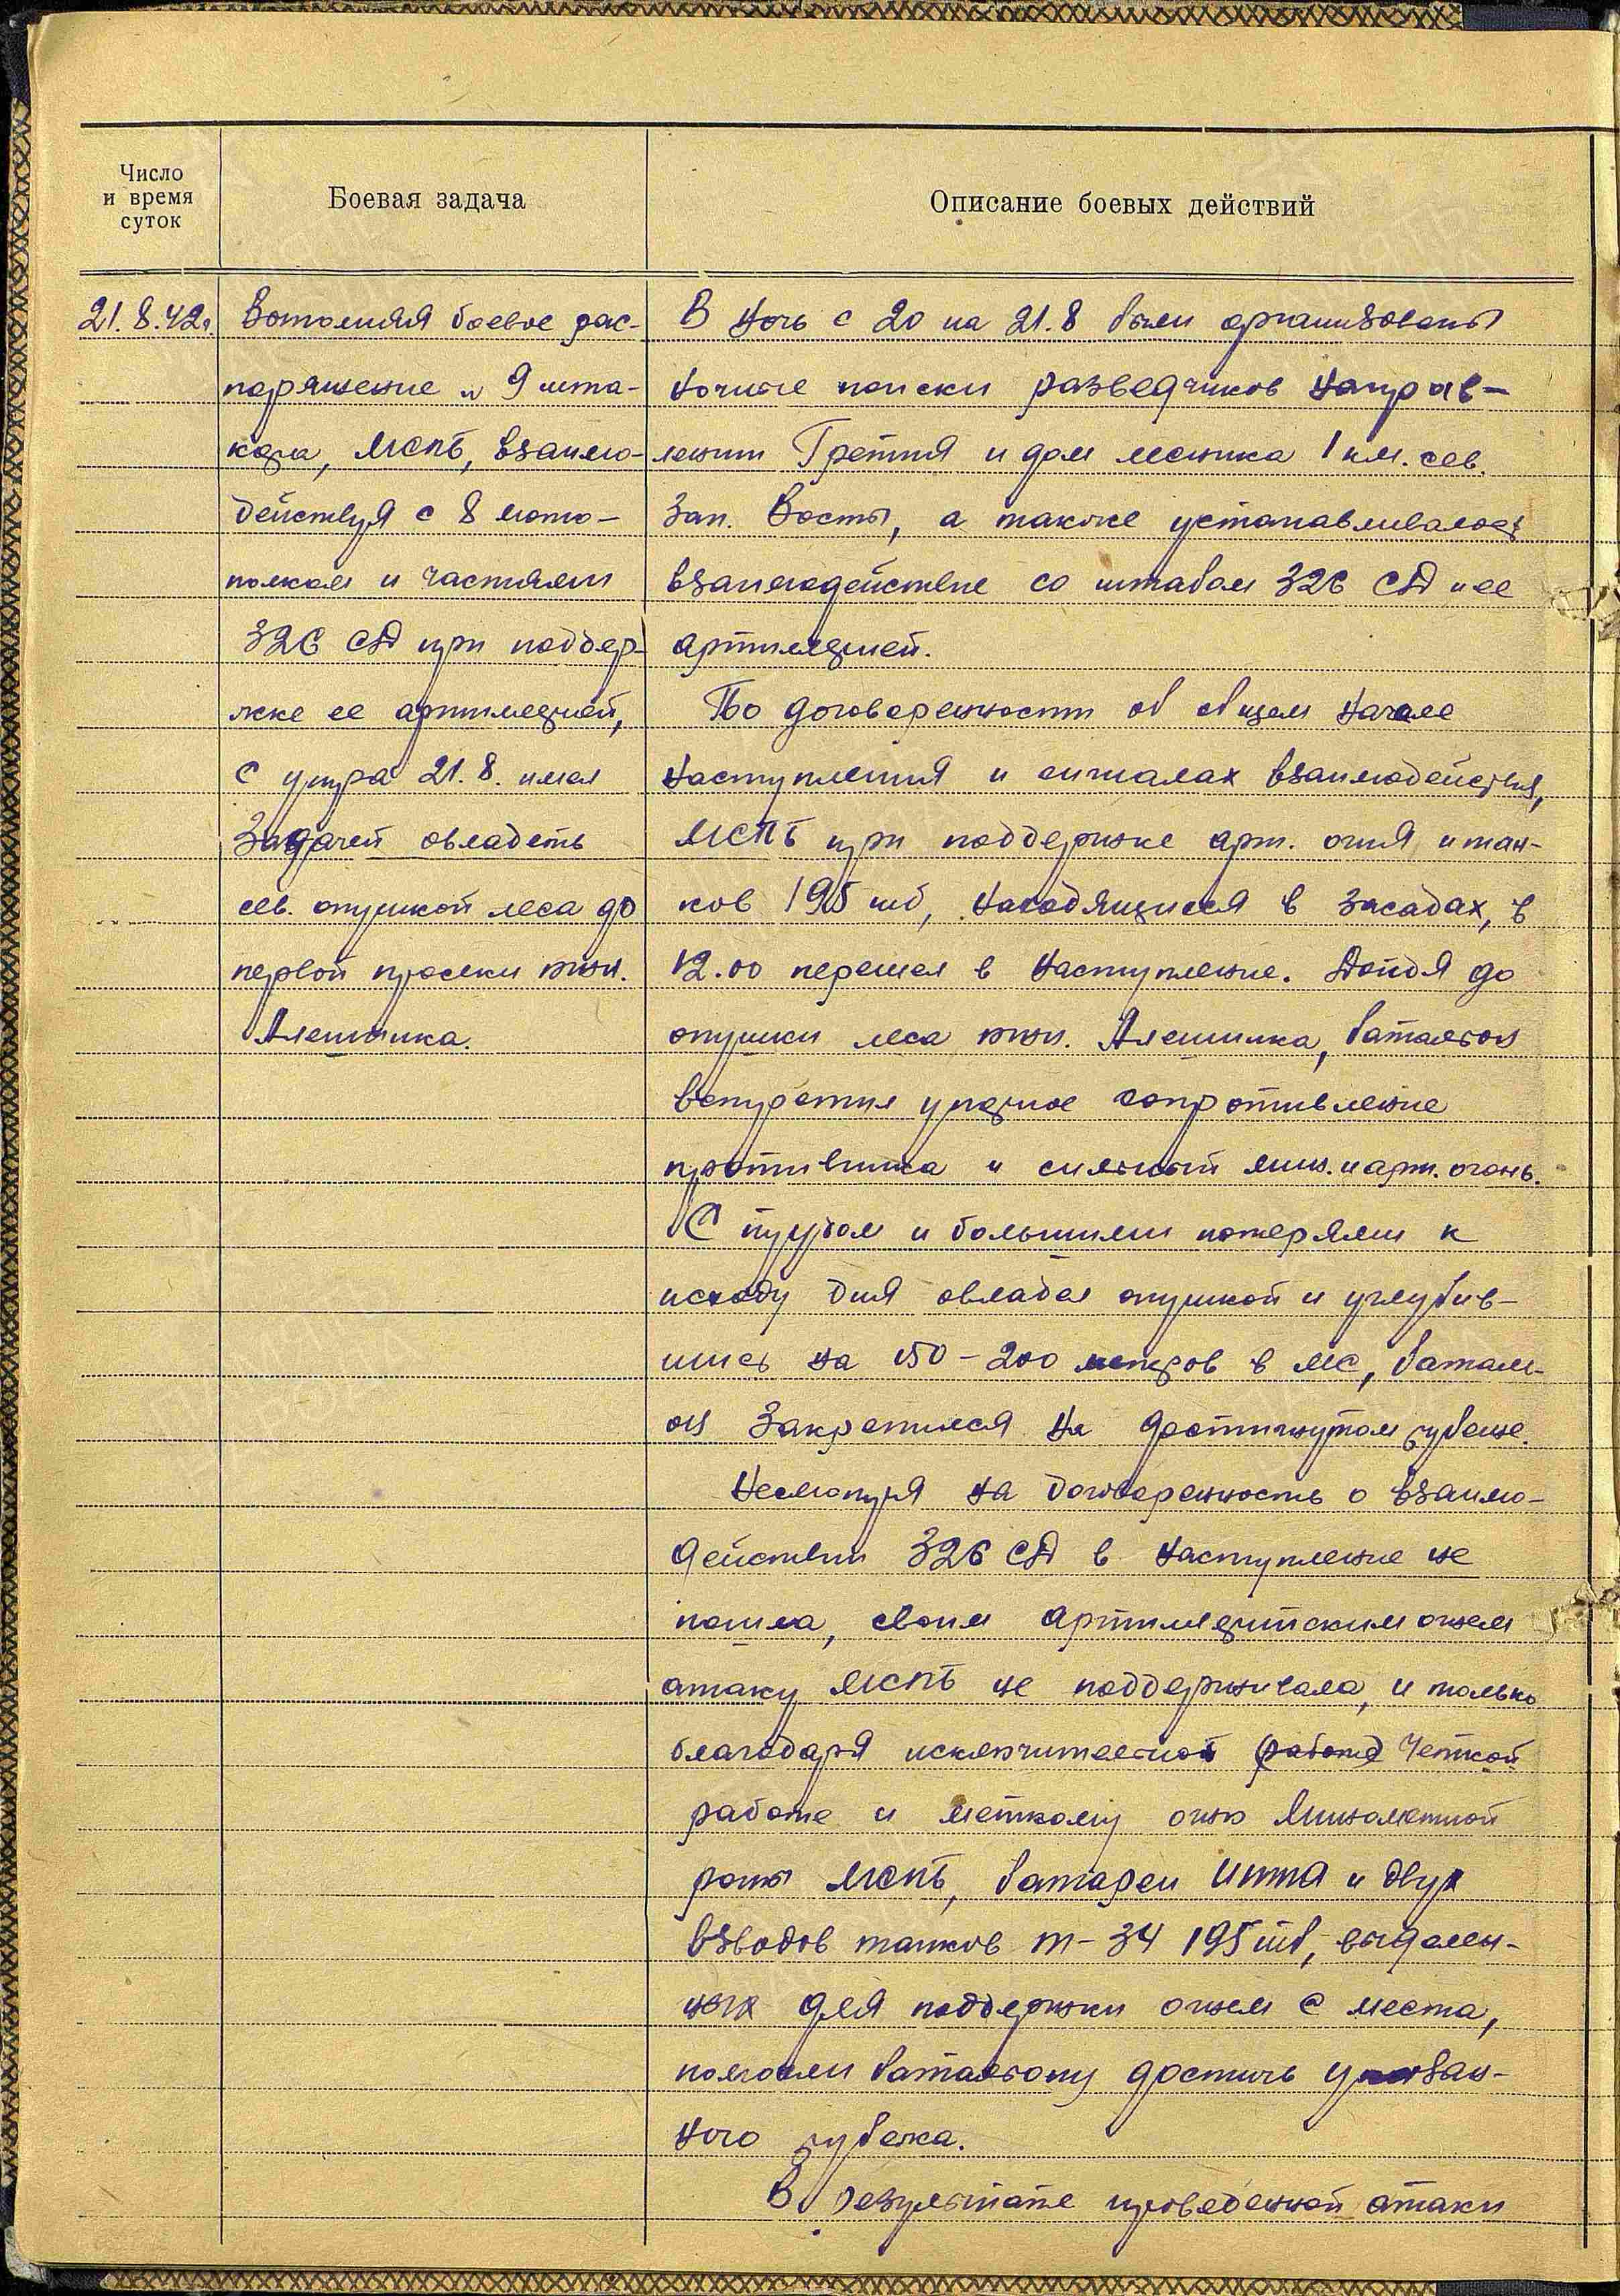 Число
и время
суток
Боевая задача
Описание боевых действий
21.8.42г.
Выполняя боевое рас-
поряжение № 9 шта-
кора, МСПБ, взаимо-
действуя с 8 мото-
полком и частями
326 СД при поддер-
жке ее артиллерией,
с утра 21.8. имел
задачей овладеть
сев. опушкой леса до
первой просеки южн.
Алешинка.
В ночь с 20 на 21.8 были организованы
ночные поиски разведчиков направ-
лении Гретня и дом лесника 1 км. сев.
зап. Восты, а также устанавливалось
взаимодействие со штабом 326 СД и ее
артиллерией.
По договоренности об общем начале
наступления и сигналах взаимодействия,
МСПБ при поддержке арт. огня и тан-
ков 195 тб, находящиеся в засадах, в
12.00 перешел в наступление. Дойдя до
опушки леса южн. Алешинка, батальон
встретил упорное сопротивление
противника и сильный мин. и арт. огонь.
С трудом и большими потерями к
исходу дня овладел опушкой и углубив-
шись на 150-200 метров в лес, баталь-
он закрепился на достигнутом рубеже.
Несмотря на договоренность о взаимо-
действии 326 СД в наступление не
пошла, своим артиллерийским огнем
атаку МСПБ не поддерживала, и только
благодаря исключительной (работе) четкой
работе и меткому огню минометной
роты МСПБ, батареи ИПТА и двух
взводов танков Т-34 195 тб, выделен-
ных для поддержки огнем с места,
помогли батальону достичь указан-
ного рубежа.
В результате проведенной атаки